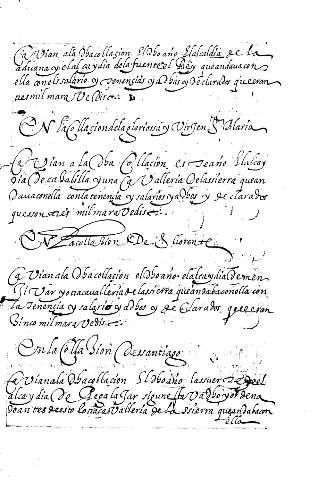 Cavian a la dha collacion el dho año el alcaldia de la
aduana y el alcaydia de la fuente el Rey que andava con
ella con el salario y tenencias y adbas y declarados que eron
tres mil maravedis
En la Collacion de la gloriossa Virgen S. Maria
Cavian a la dha collacion este año el alcay
dia de cabalilla y una Cavalleria de la sierra que an
dava con ella con la tenencia y salarios y adbos y declarados
que eron tres mil maravedis
En la collasion de S. llorente
Cavian a la dha collacion el dho año el alcaydia de men
givar y otra cavalleria de la sierra que andaba con ella con
la tenencia y salario y adbos y declarados que eron
cinco mil maravedis
En la collasion de santiago
Cavian a la dha collacion el dho año la suerte del
alcaydia de Pegalajar sigun estava dho y ordena
doantes de esto los cavalleria de la sierra que andaba con
ella